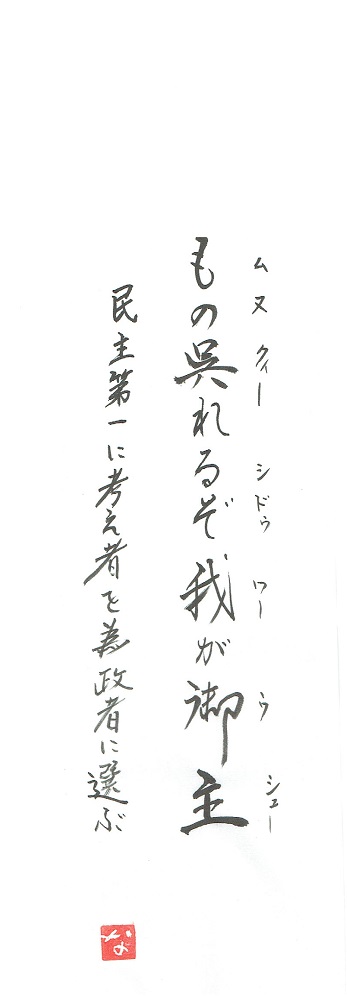 ムヌクィーシドゥワーウシュー
もの呉れるぞ我が御主
民主第一に考え者を為政者に選ぶ
な